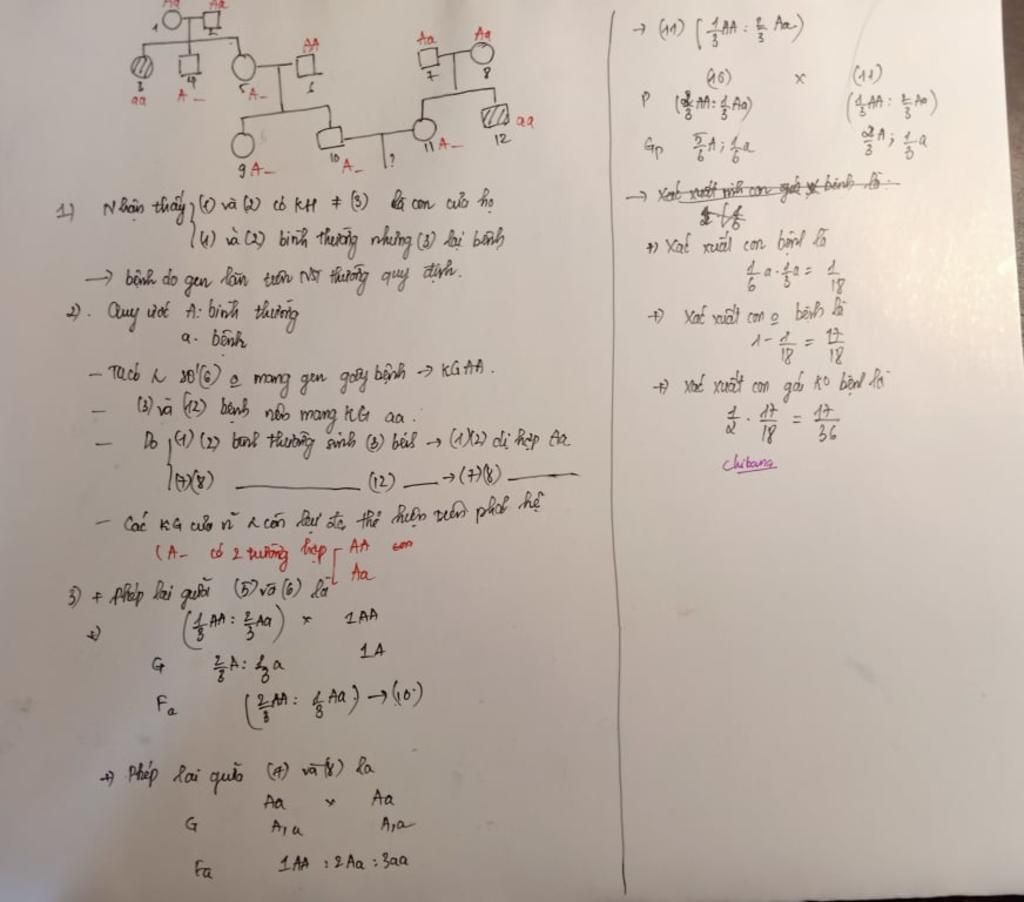 Aa Aa
1 2
AA Aa Aa
3 4 5 6 7 8
aa A_ A_
aa
9 A_ 10 A_ ? 11 A_ 12
1) Nhận thấy (1) và (2) có KH ≠ (3) là con của họ
(1) và (2) bình thường nhưng (3) lại bệnh
→ bệnh do gen lặn trên NST thường quy định.
2). Quy ước A: bình thường
a. bệnh
- Ta có (6) o mang gen gây bệnh → KG AA.
- (3) và (12) bệnh nên mang KG aa.
- Do (1) (2) bình thường sinh (3) bệnh → (1)(2) dị hợp Aa
(7)(8) ______ (12) ___ → (7)(8) ______
- Các KG của còn lại đc thể hiện trên phả hệ
(A_ có 2 trường hợp AA
Aa
3) + Phép lai giữa (5) và (6) là
(1/3 AA : 2/3 Aa) × 1AA
G 2/3 A : 1/3 a 1A
Fa (2/3 AA : 1/3 Aa) → (10)
+) Phép lai giữa (7) và (8) là
Aa × Aa
G A,a A,a
Fa 1AA : 2Aa : 3aa
→ (11) (1/3 AA : 2/3 Aa)
(10) × (11)
P (2/3 AA : 1/3 Aa) (1/3 AA : 2/3 Aa)
Gp 5/6 A ; 1/6 a 2/3 A ; 1/3 a
+) Xác xuất con bệnh là
1/6 a . 1/3 a = 1/18
+) Xác xuất con o bệnh là
1 - 1/18 = 17/18
+) Xác xuất con gái KO bệnh là
1/2 . 17/18 = 17/36
chibang